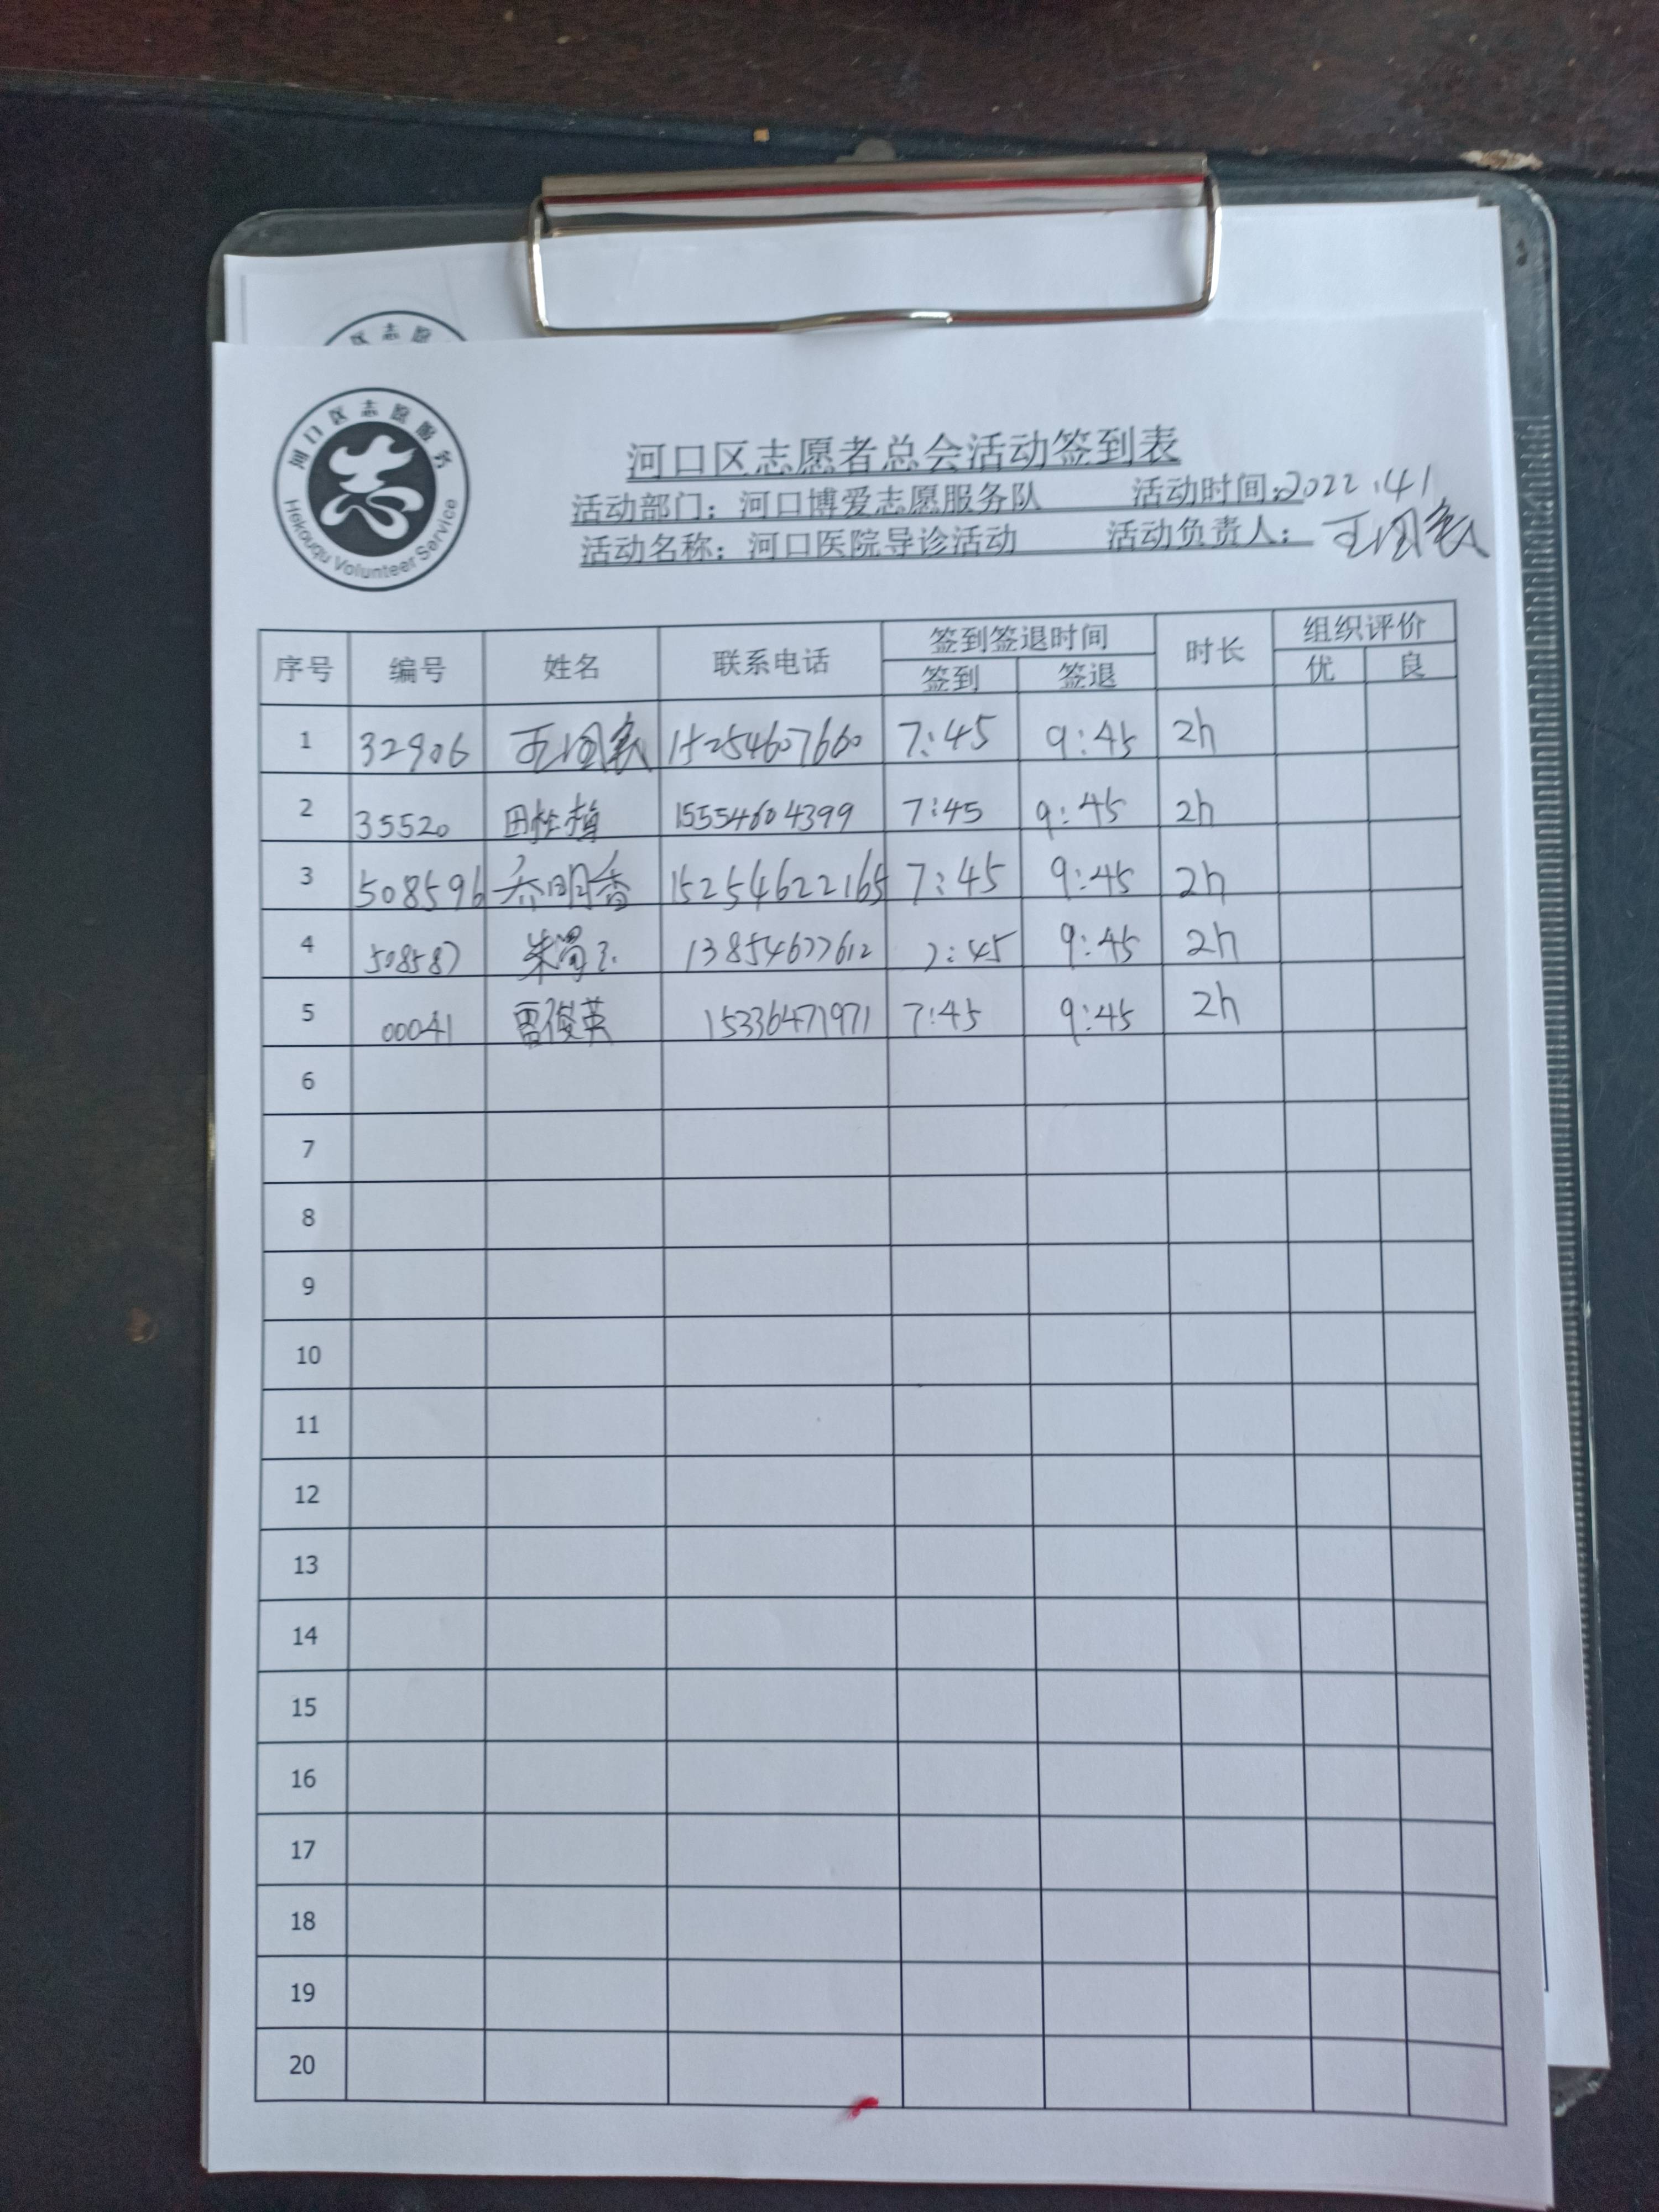 河口区志愿
河口区志愿服务
Hekouqu Volunteer Service
河口区志愿者总会活动签到表
活动部门：河口博爱志愿服务队 活动时间：2022.4.1
活动名称：河口医院导诊活动 活动负责人：王国家
序号 编号 姓名 联系电话 签到签退时间 时长 组织评价
签到 签退 优 良
1 32906 王国家 15254607660 7:45 9:45 2h
2 35520 田 15554604399 7:45 9:45 2h
3 508596 乔明香 15254622165 7:45 9:45 2h
4 508587 朱 13854677612 7:45 9:45 2h
5 00041 雷俊英 15336471971 7:45 9:45 2h
6
7
8
9
10
11
12
13
14
15
16
17
18
19
20